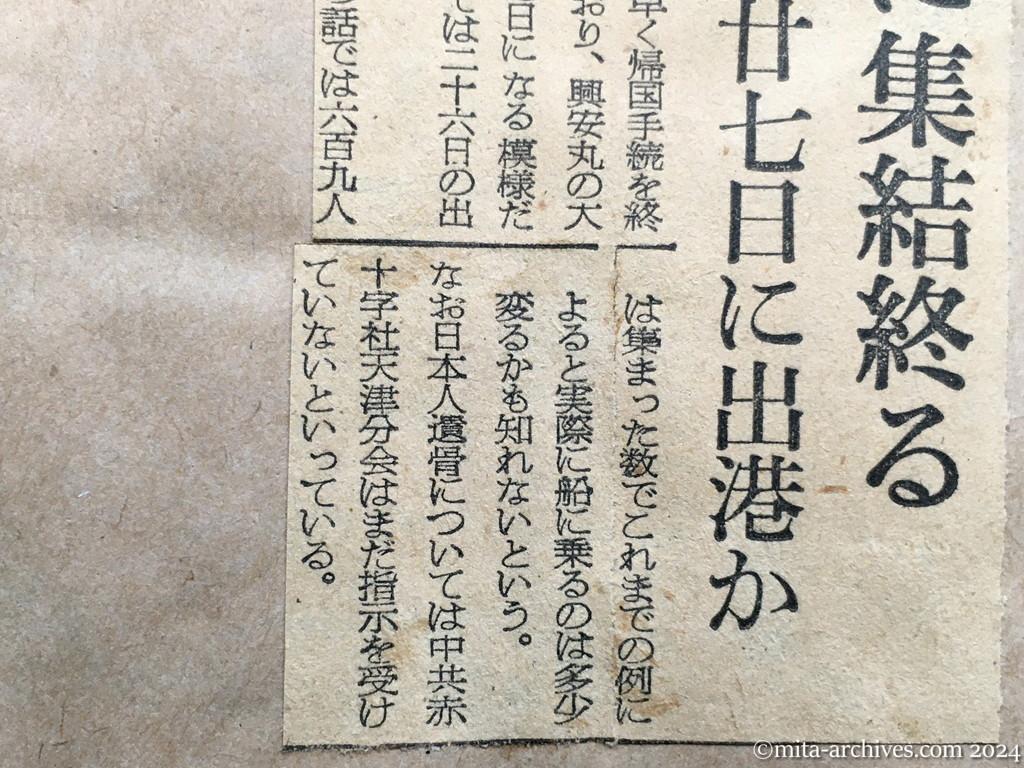 に集結終る
廿七日に出港か
早く帰国手続を終
おり、興安丸の大
日になる模様だ
ては二十六日の出
話では六百九人
は集まった数でこれまでの例に
よると実際に船に乗るのは多少
変るかも知れないという。
なお日本人遺骨については中共赤
十字社天津分会はまだ指示を受け
ていないといっている。
©mita-archives.com 2024